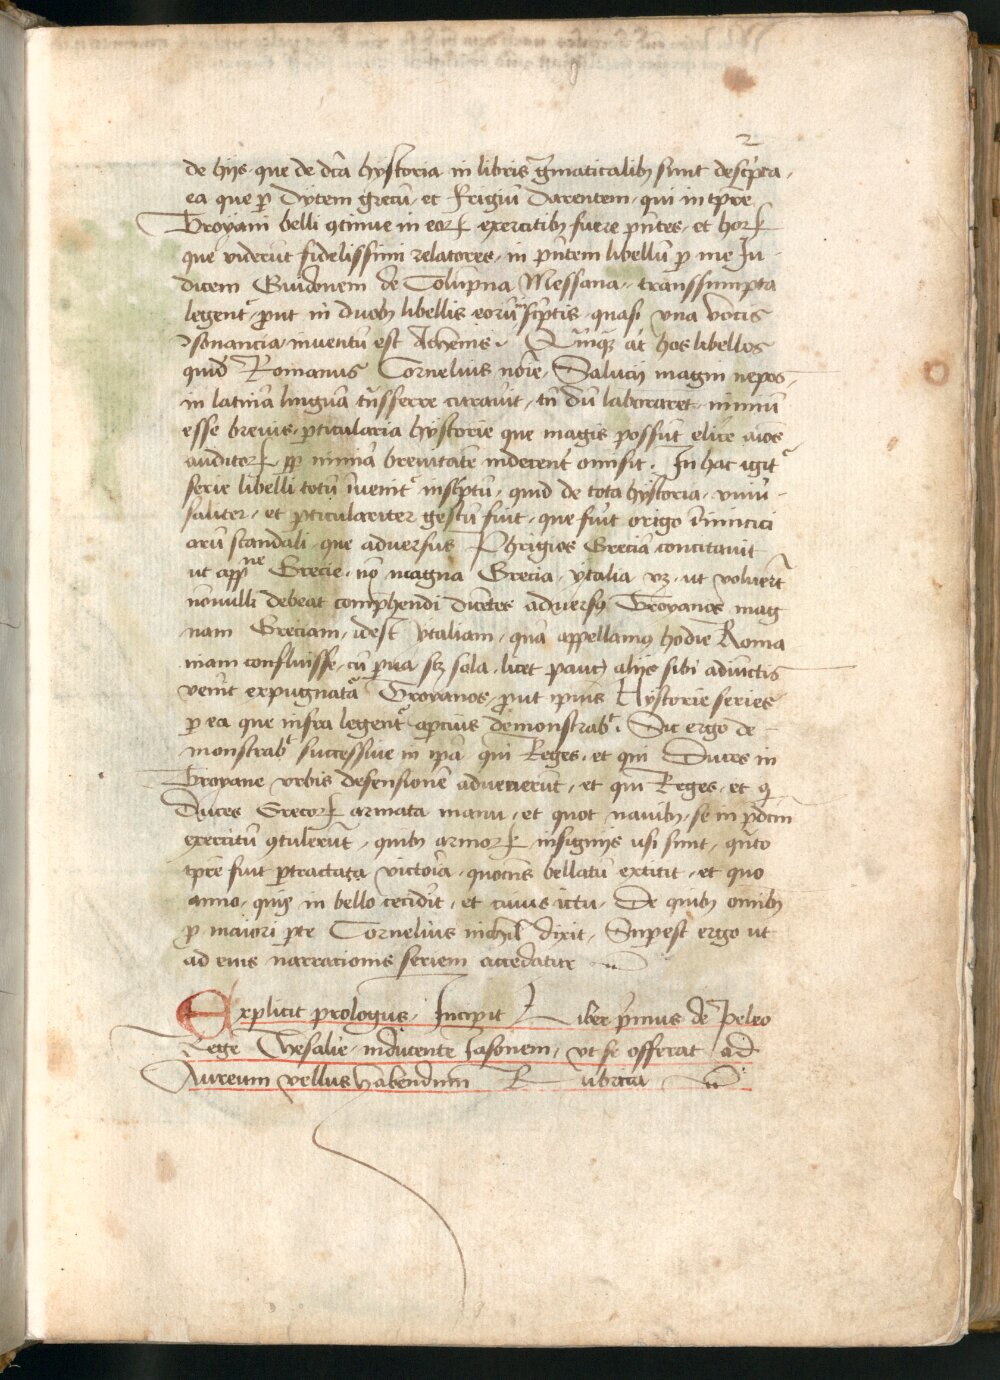 2
de hijs que de dc̄a hystoria in libris gͣmaticalibꝫ sunt descͥpta,
ea que ꝑ dytem grecū, et Frigiū Darentem, qui in tp̄re
Troyani belli ꝯtinue in eoꝝ exercitibꝫ fuere pn̄tes, et hoꝝ
que viderūt fidelissimi relatores, in pn̄tem libellū ꝑ me Ju-
dicem Guidonem de Columpna Messana, transsumpta
legent᷑, ꝓut in duobꝫ libellis eorū inscͥptis, quasi vna vocis
ꝯsonancia inuentū est Athenis. Quāqꝫ aūt hos libellos
quid̄ Romanus Cornelius nōie, Salustij magni nepos,
in latinā linguā trāsferre curauit, tn̄ dū laboraret nimiū
esse breuis, ꝑticularia hystorie que magis possūt elicͤ aīos
auditoꝝ ꝓp̄ nimiā breuitatē indecent᷑ omisit. In hac igit᷑
serie libelli totū īuenit᷑ inscͥptū, quid de tota hystoria, vniū-
saliter, et ꝑticulariter gestū fuit, que fuit origo inimici
ciarū scandali que aduersus Phrigios Greciā concitauit
ut appͤne Grecie, nō magna Grecia, ytalia vꝫ, ut voluert̄
nonulli debeat comp̄hendi dicētes aduersꝰ Troyanos mag
nam Greciam, idest ytaliam, quā appellamꝰ hodie Roma
niam confluxisse, cū ꝑua sꝫ sola, licet paucꝭ alijs sibi adiunctis
venīt expugnatā Troyanos, ꝓut ipius Hystorie series
ꝑ ea que infra legent᷑ apcius demonstrab᷑. Sic ergo de-
monstrab᷑ successiue in ip̄a qui Reges, et qui Duces in
Troyane vrbis defensionē aduenerūt, et qui Reges, et qͥ
Duces Grecoꝝ armata manu, et quot nauibꝫ, se in p̄dcm̄
exercitū ꝯtulerūt, quibꝫ armoꝝ insignijs usi sunt, qn̄to
tp̄re fuit ꝑtractata victoria, quociēs bellatū extitit, et quo
anno, quis in bello cecidit, et cuius ictu. De quibꝫ om̄ibꝫ
ꝓ maiori ꝑte Cornelius nichil dixit, Suꝑest ergo ut
ad eius narracionis seriem accedatur
Explicit prologus, Incipit Liber pͥmus de Peleo
Rege Thesalie, inducente Jasonem, vt se offerat ad
Aureum vellus habendum Rubrica